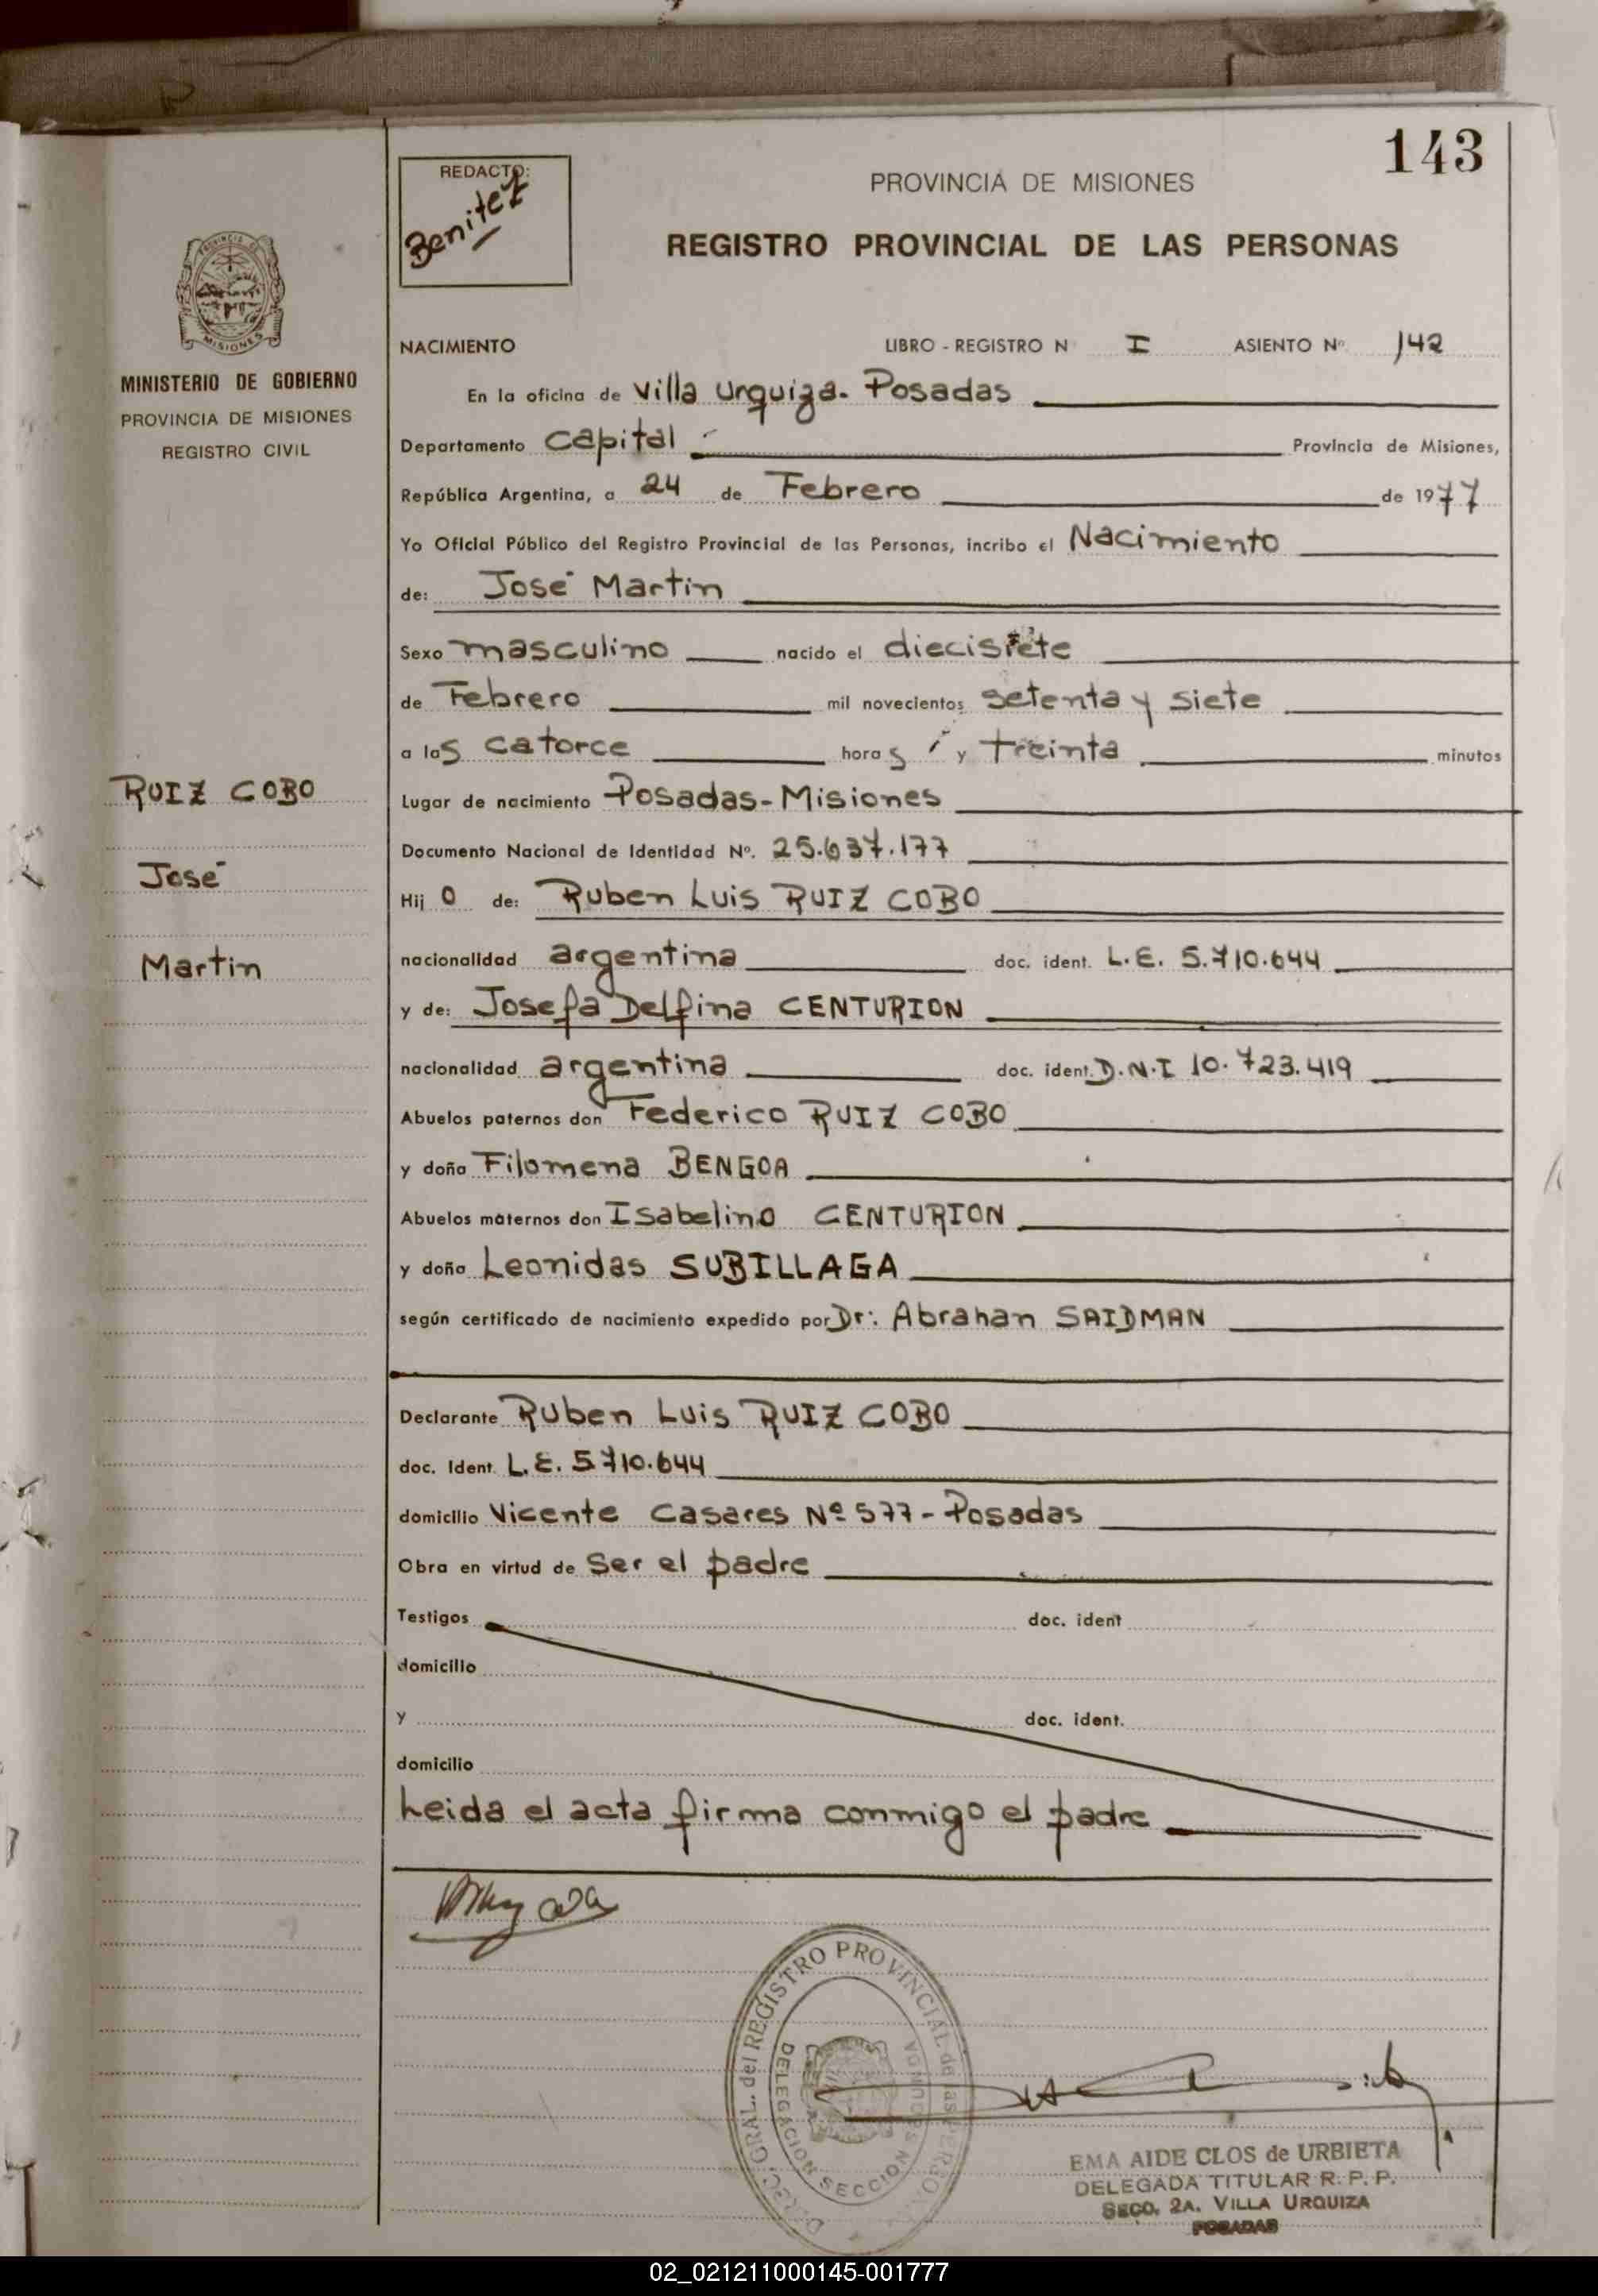 143
REDACTO:
Benitez
PROVINCIA DE MISIONES
REGISTRO PROVINCIAL DE LAS PERSONAS
PROVINCIA DE
MISIONES
MINISTERIO DE GOBIERNO
PROVINCIA DE MISIONES
REGISTRO CIVIL
RUIZ COBO
José
Martin
NACIMIENTO LIBRO - REGISTRO N I ASIENTO Nº 142
En la oficina de Villa Urquiza. Posadas
Departamento Capital Provincia de Misiones,
República Argentina, a 24 de Febrero de 1977
Yo Oficial Público del Registro Provincial de las Personas, incribo el Nacimiento
de: José Martin
Sexo masculino nacido el diecisiete
de Febrero mil novecientos setenta y siete
a las catorce horas y treinta minutos
Lugar de nacimiento Posadas-Misiones
Documento Nacional de Identidad Nº. 25.637.177
Hijo de: Ruben Luis RUIZ COBO
nacionalidad argentina doc. ident. L.E. 5.710.644
y de: Josefa Delfina CENTURION
nacionalidad argentina doc. ident. D.N.I 10.723.419
Abuelos paternos don Federico RUIZ COBO
y doña Filomena BENGOA
Abuelos maternos don Isabelino CENTURION
y doña Leonidas SUBILLAGA
según certificado de nacimiento expedido por Dr: Abrahan SAIDMAN
Declarante Ruben Luis RUIZ COBO
doc. Ident. L.E. 5.710.644
domicilio Vicente Casares Nº 577-Posadas
Obra en virtud de ser el padre
Testigos doc. ident
domicilio
y doc. ident.
domicilio
Leida el acta firma conmigo el padre
DIREC. GRAL. del REGISTRO PROVINCIAL de las PERSONAS
DELEGACION SECCION SEGUNDA
EMA AIDE CLOS de URBIETA
DELEGADA TITULAR R. P. P.
SECC. 2A. VILLA URQUIZA
POSADAS
02_021211000145-001777